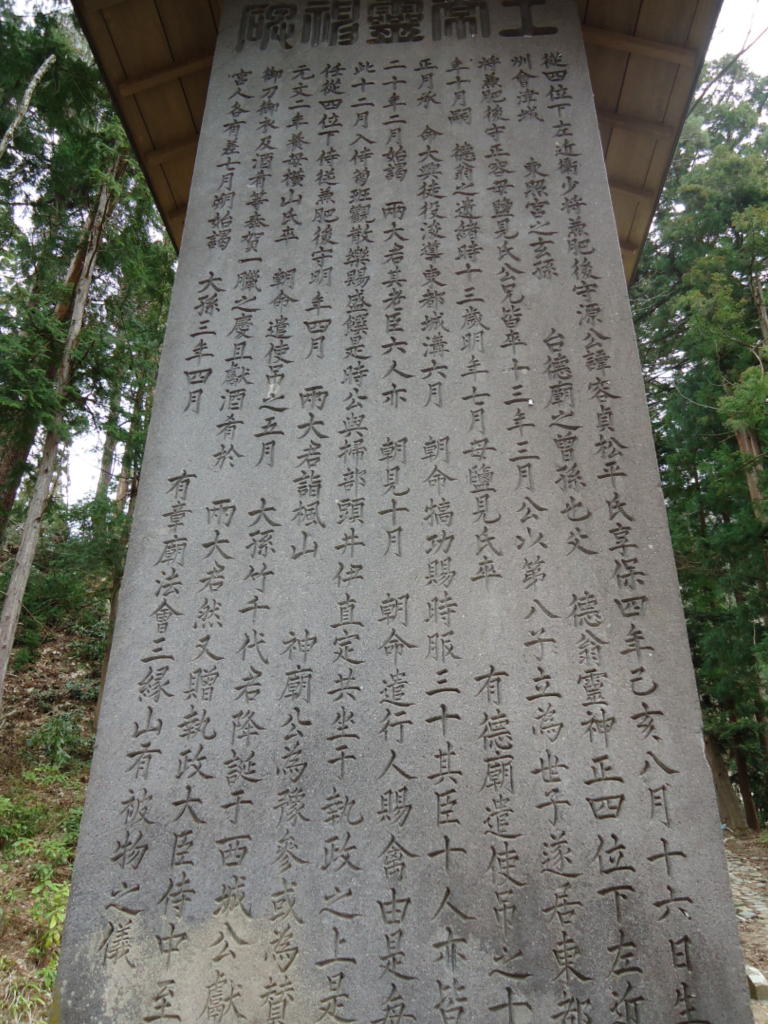 土常靈神碑
從四位下左近衞少將兼肥後守源公諱容貞松平氏享保四年己亥八月十六日生
州會津城 東照宮之玄孫 台德廟之曾孫也父 德翁靈神正四位下左近
將兼肥後守正容母鹽見氏公兄皆卒十三年三月公以第八子立為世子遂居東都
年十月嗣 德翁之遺緒時十三歲明年七月母鹽見氏卒 有德廟遣使吊之十
正月承 命大興徒役浚導東都城溝六月 朝命犒功賜時服三十其臣十人亦皆
二十年二月始謁 兩大君其老臣六人亦 朝見十月 朝命遣行人賜禽由是每
此十二月入侍曾班觀散樂賜盛饌是時公與掃部頭井伊直定共坐于執政之上是
任從四位下侍從兼肥後守明年四月 兩大君詣楓山 神廟公為豫參或為贊
元文二年養母橫山氏卒 朝命遣使吊之五月 大孫竹千代君降誕于西城公獻
御刀御衣及酒肴等恭賀一臘之慶且獻酒肴於 兩大君然又贈執政大臣侍中至
宮人各有差七月朔始謁 大孫三年四月 有章廟法會三緣山有被物之儀